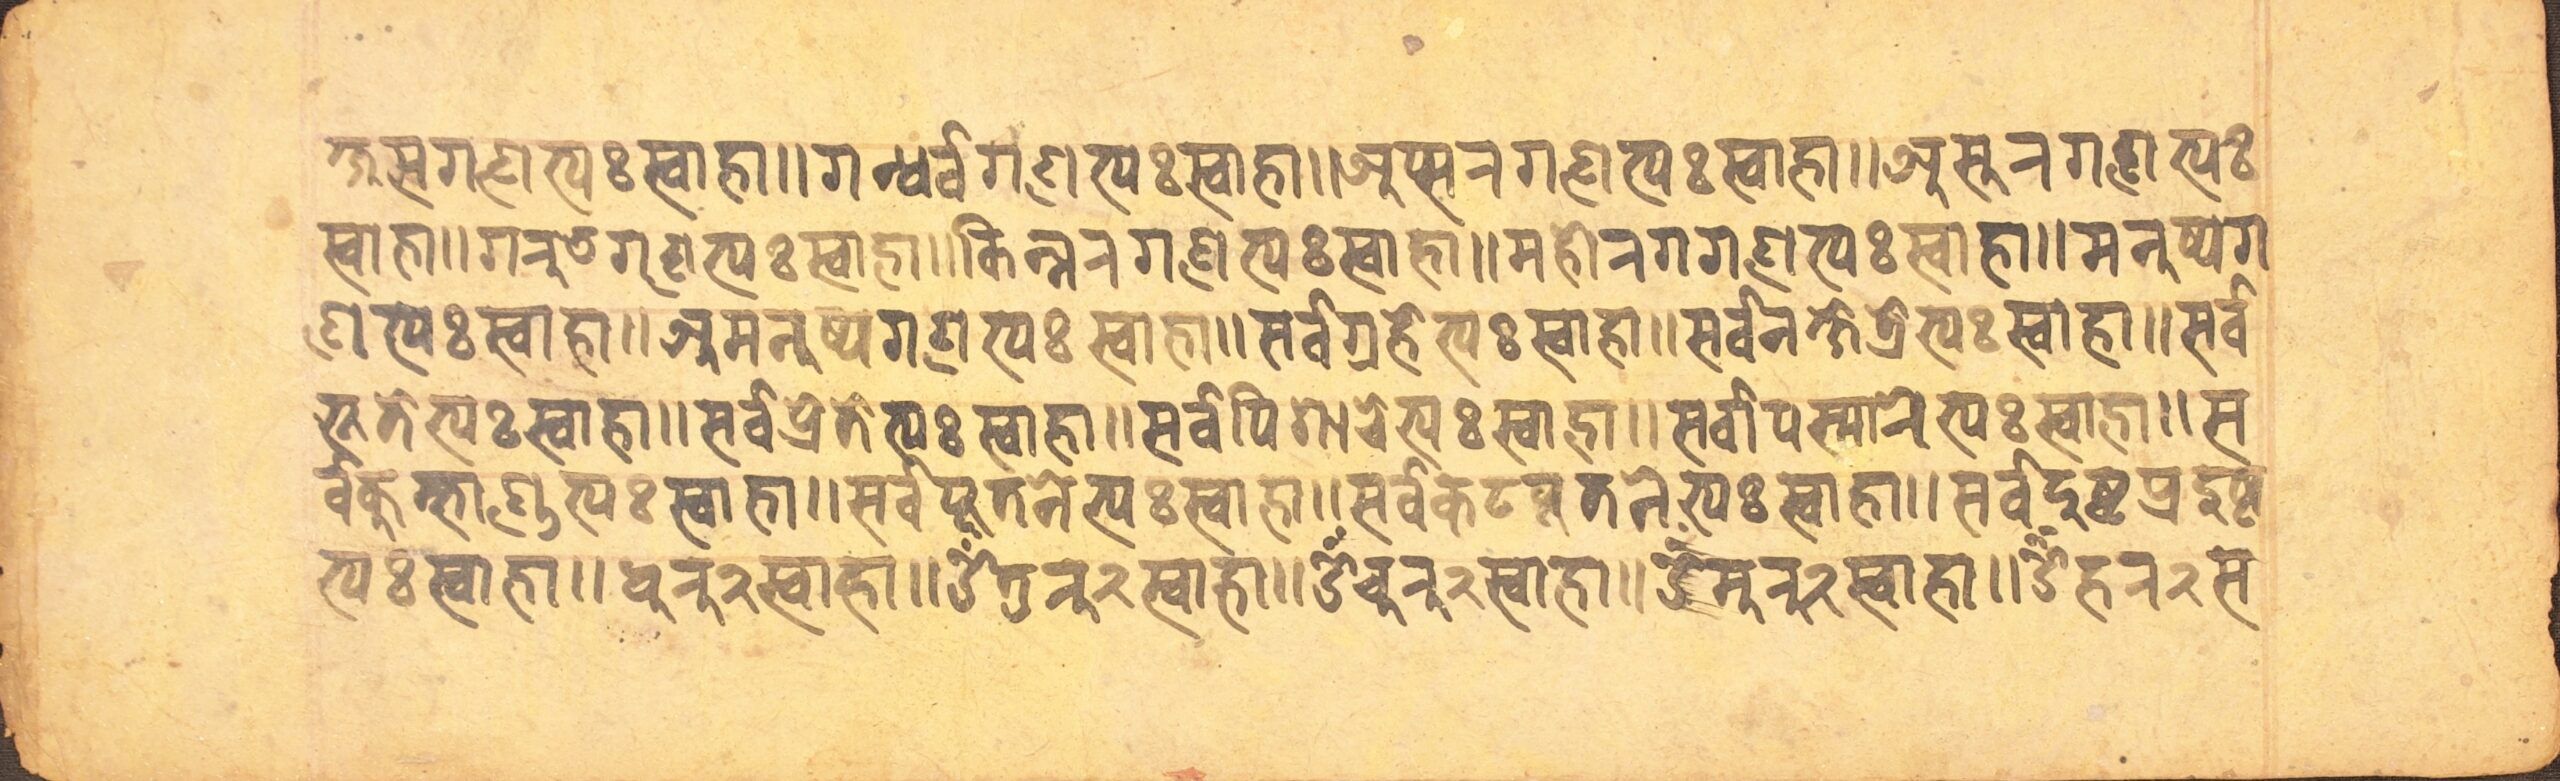 क्षसगणेभ्यः स्वाहा॥ गन्धर्वगणेभ्यः स्वाहा॥ अप्सरगणेभ्यः स्वाहा॥ असुरगणेभ्यः
स्वाहा॥ गरुडगणेभ्यः स्वाहा॥ किन्नरगणेभ्यः स्वाहा॥ महोरगगणेभ्यः स्वाहा॥ मनुष्यग
णेभ्यः स्वाहा॥ अमनुष्यगणेभ्यः स्वाहा॥ सर्वग्रहेभ्यः स्वाहा॥ सर्वनक्षेत्रेभ्यः स्वाहा॥ सर्व
भूतेभ्यः स्वाहा॥ सर्वप्रेतेभ्यः स्वाहा॥ सर्वपिशाचेभ्यः स्वाहा॥ सर्वापस्मारेभ्यः स्वाहा॥ स
र्वकुम्भाण्डेभ्यः स्वाहा॥ सर्वपूतनेभ्यः स्वाहा॥ सर्वकटपूतनेभ्यः स्वाहा॥ सर्वदुष्टप्रदुष्टे
भ्यः स्वाहा॥ धुरु२ स्वाहा॥ ॐ तुरु२ स्वाहा॥ ॐ चुरु२ स्वाहा॥ ॐ मुरु२ स्वाहा॥ ॐ हन२ स